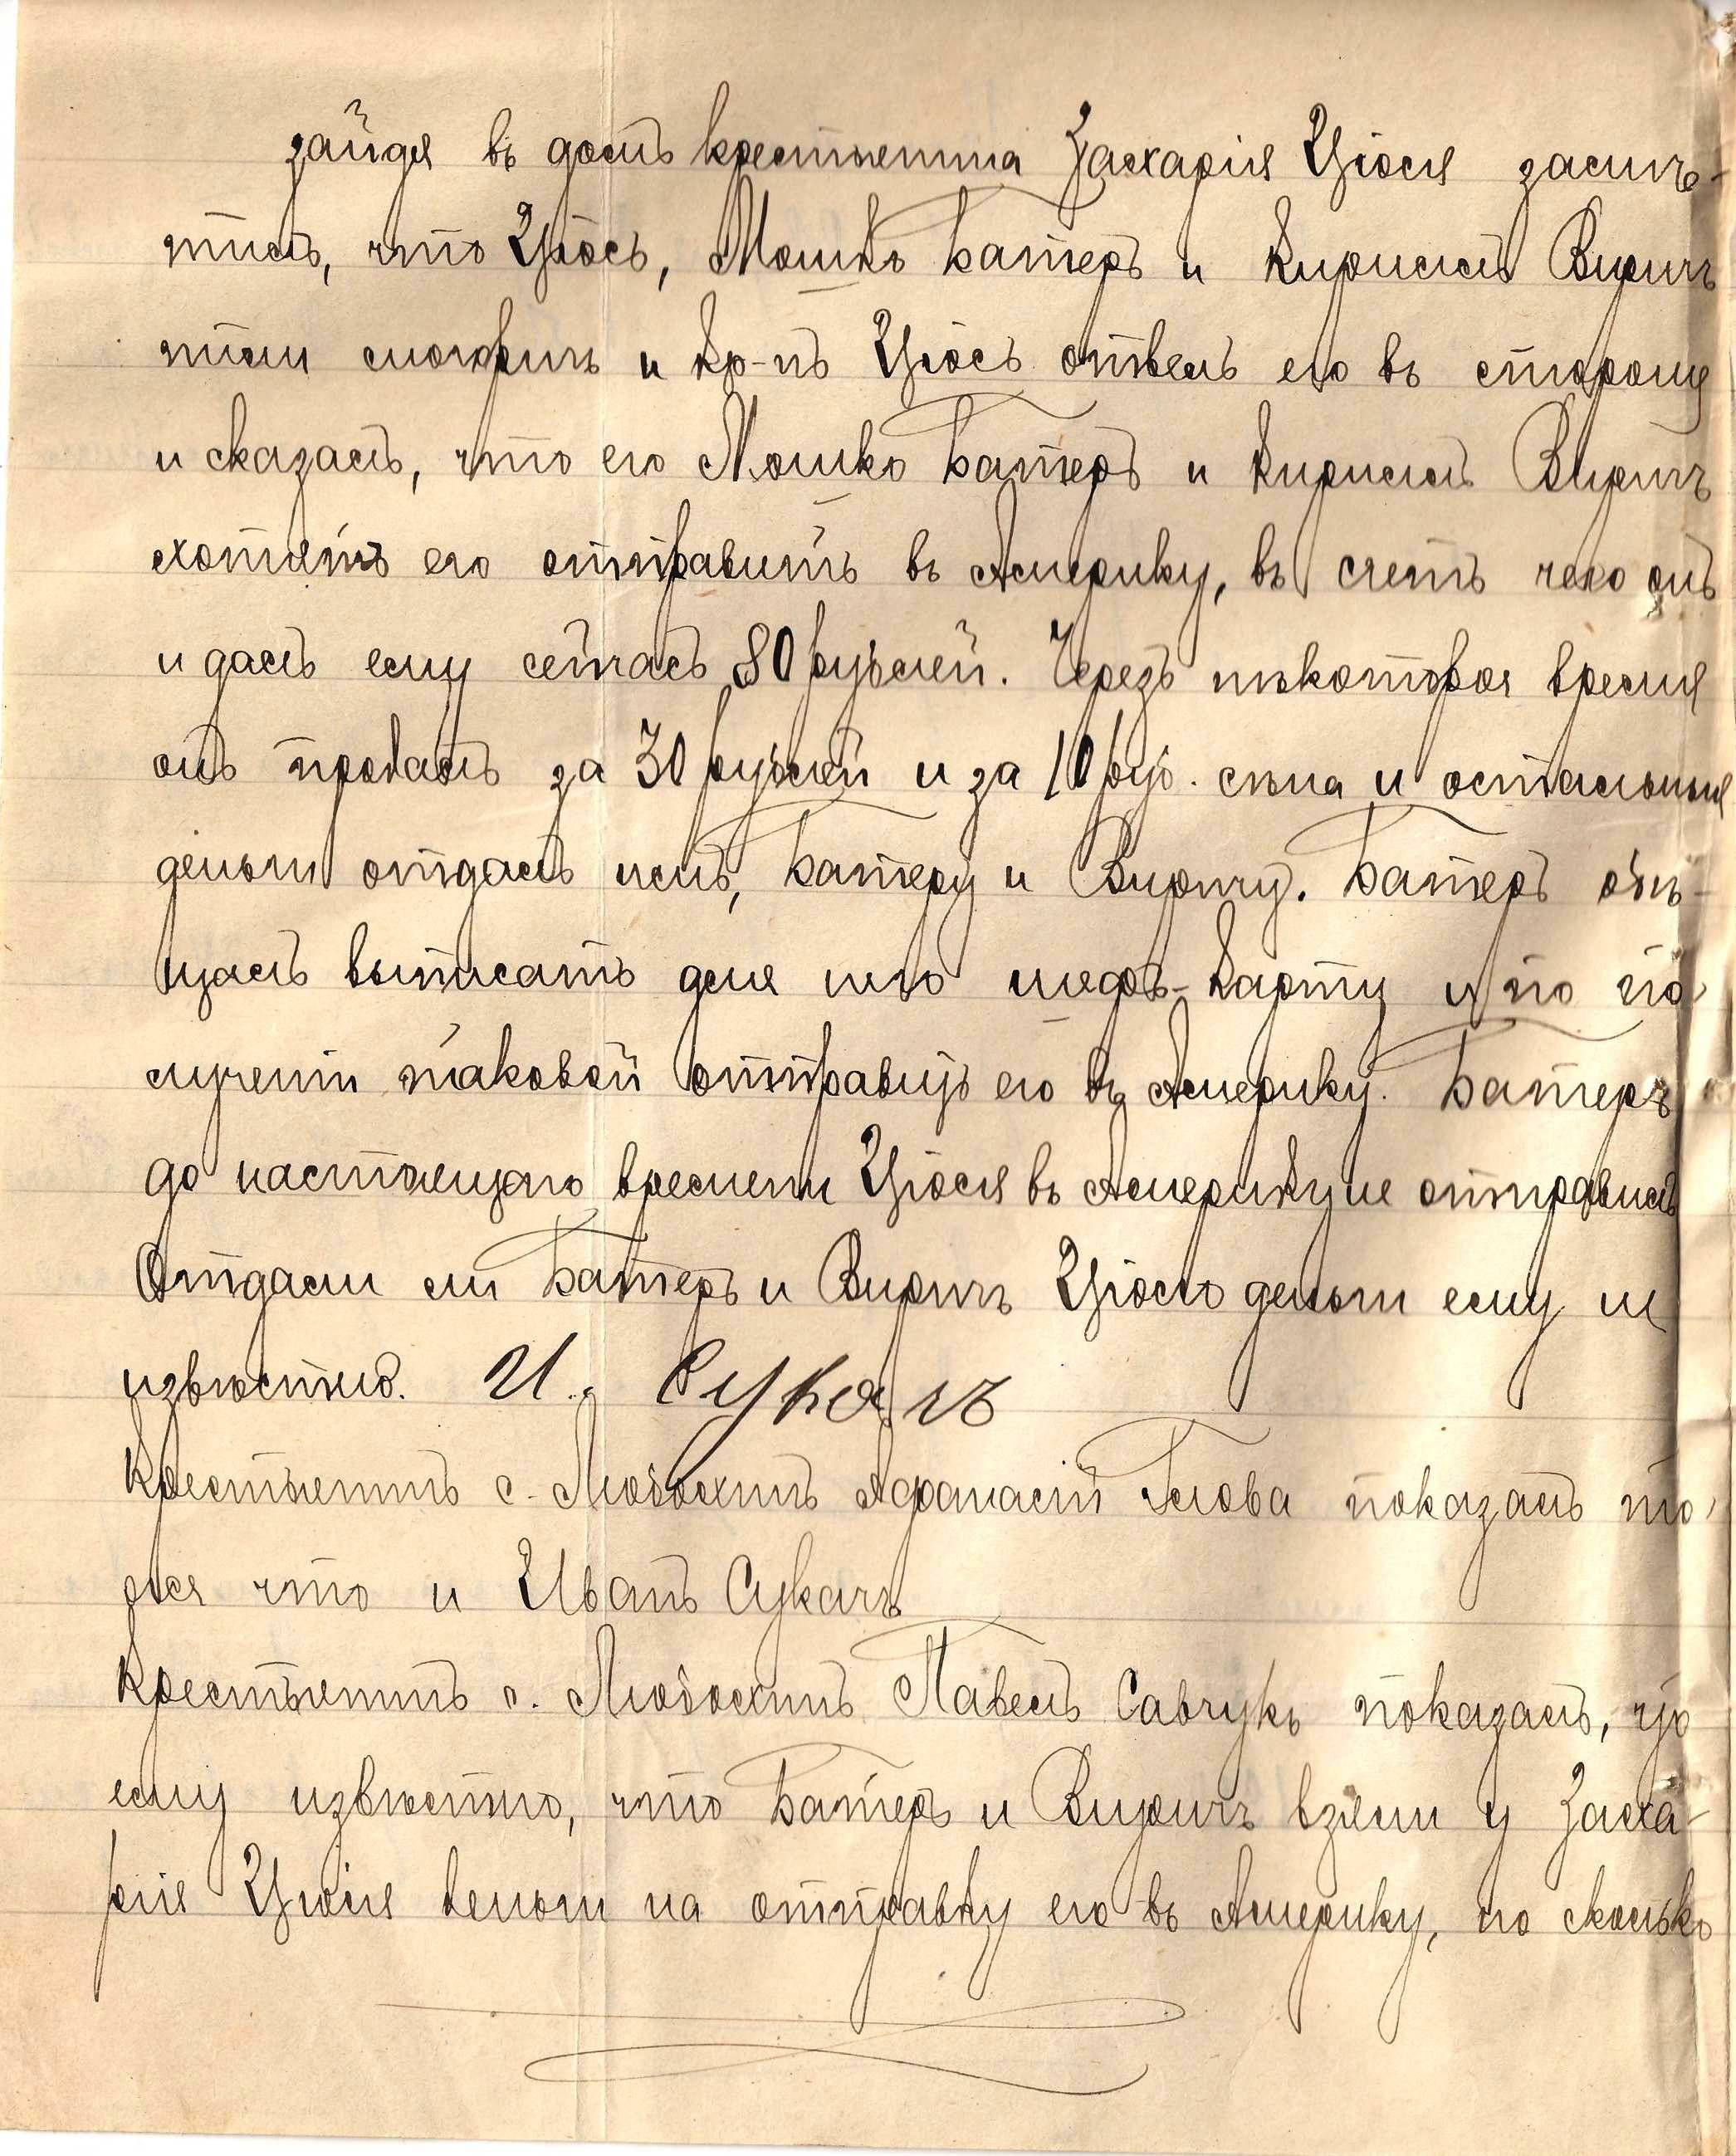 зайдя въ домъ крестьянина Захарія Цюся замѣ-
тилъ, что Цюсь, Мошко Батеръ и Кириллъ Вирич
пили могоричъ и кр-нъ Цюсь отвелъ его въ сторону
и сказалъ, что его Мошко Батеръ и Кириллъ Виричъ
хотятъ его отправить въ Америку, въ счетъ чего онъ
и далъ ему сейчасъ 80 рублей. Черезъ нѣкоторое время
онъ продалъ за 30 рублей и за 10 руб. сѣна и остальныя
деньги отдалъ имъ, Батеру и Виричу. Батеръ обѣ-
щалъ выписать для него шифъ-карту и по по-
лученіи таковой отправить его въ Америку. Батеръ
до настоящаго времени Цюся въ Америку не отправилъ
Отдали ли Батеръ и Виричъ Цюсю деньги ему не
извѣстно. И. Сукачъ
Крестьянинъ с. Любохинъ Афанасій Глова показалъ то
же что и Иванъ Сукачъ
Крестьянинъ с. Любохинъ Павелъ Савчукъ показалъ, что
ему извѣстно, что Батеръ и Виричъ взяли у Заха-
рія Цюся деньги на отправку его въ Америку, но сколько